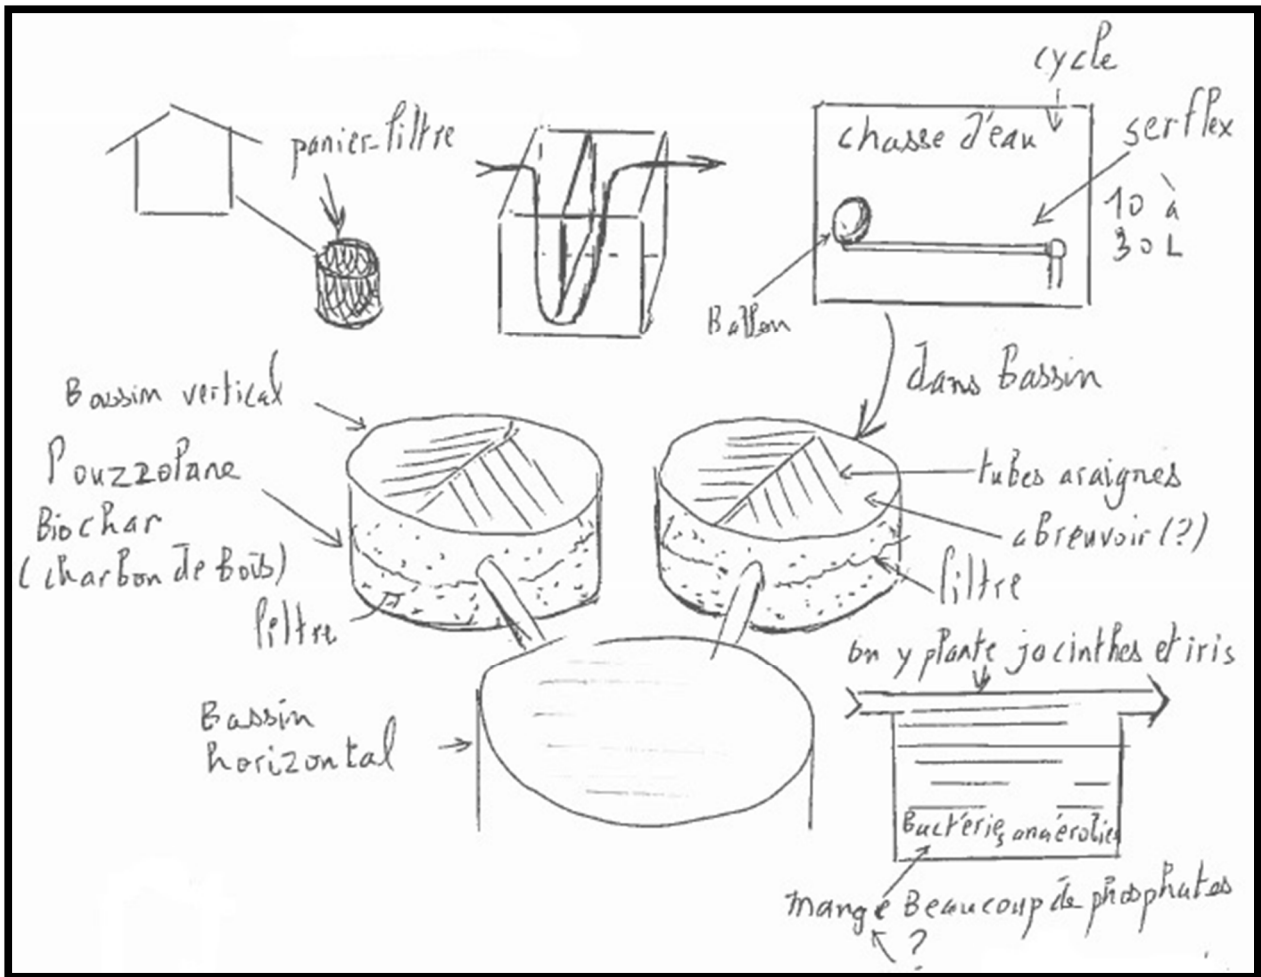 cycle
panier-filtre
chasse d'eau
serflex
10 à
30 L
Ballon
dans Bassin
Bassin vertical
Pouzzolane
Biochar
(charbon de bois)
filtre
tubes araignes
abreuvoir (?)
filtre
on y plante jacinthes et iris
Bassin
horizontal
Bactéries anaérobies
mange Beaucoup de phosphates
?